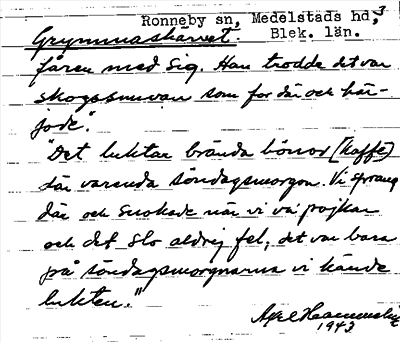 Ronneby sn, Medelstads hd,
3
Blek. län.
Grymnaskärret.
fåren med sig. Han trodde det var
skogssnuvan som for där och här-
jode".
"Det luktar brända bönor (kaffe)
där varenda söndagsmorgon. Vi sprang
där och snokade när vi va' pojkar
och det slo aldrig fel, det var bara
på söndagsmorgnarna vi kände
lukten."
Axel
1943